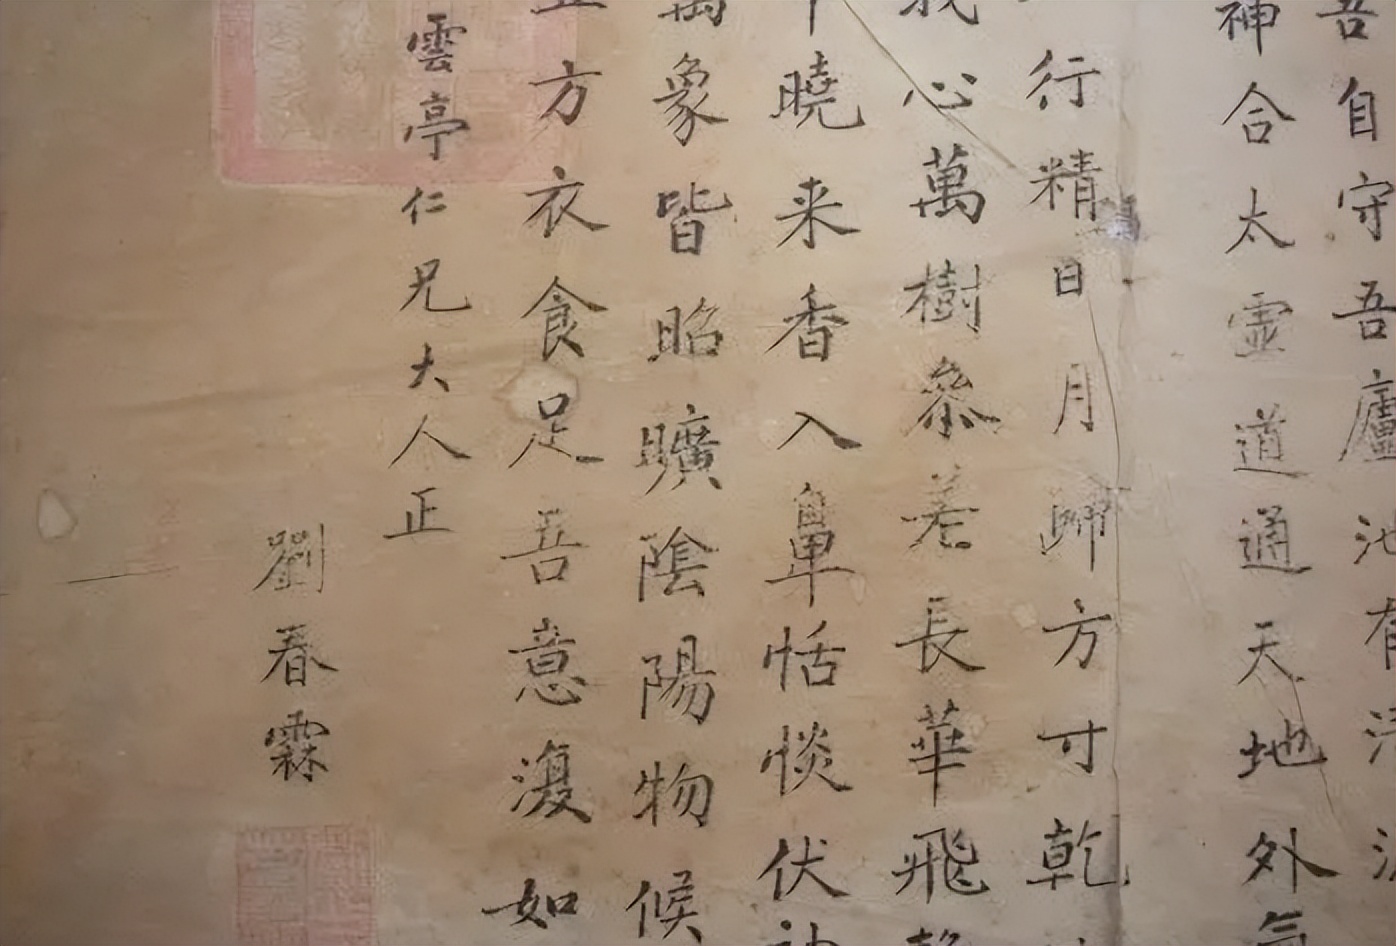 吾自守吾廬池有
神合太霊道通天地外氣
行精日月歸方寸乾
我心萬樹參差長華飛
曉来香入鼻恬惔伏神
萬象皆昭曠陰陽物候
方衣食足吾意澓如
雲亭仁兄大人正
劉春霖